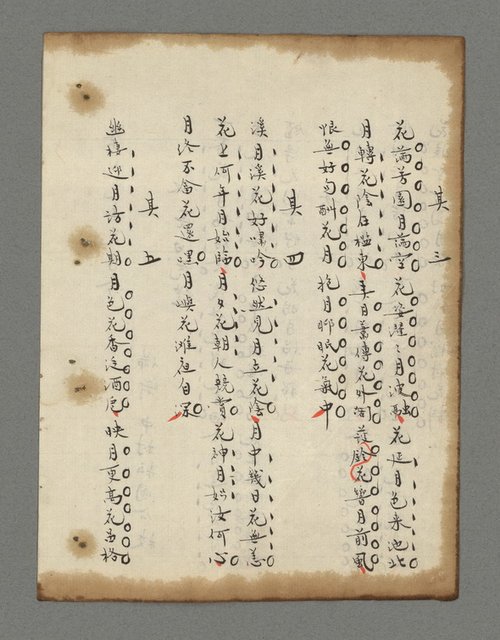 其三
花滿芳園月滿空花姿灩灩月波融花延月色來池北
月轉花陰在檻東美日蕾傳花外調護鈴花皆月前風
恨無好句酬花月抱月聊眠花氣中
其四
溪月溪花好嘯吟悠然見月立花陰月中幾日花無恙
花上何年月始臨月夕花朝人競賞花神月姊汝何心
月終不留花還嘿月嶼花灘夜自深
其五
幽棲迎月訪花期月色花香泛酒卮映月更高花品格